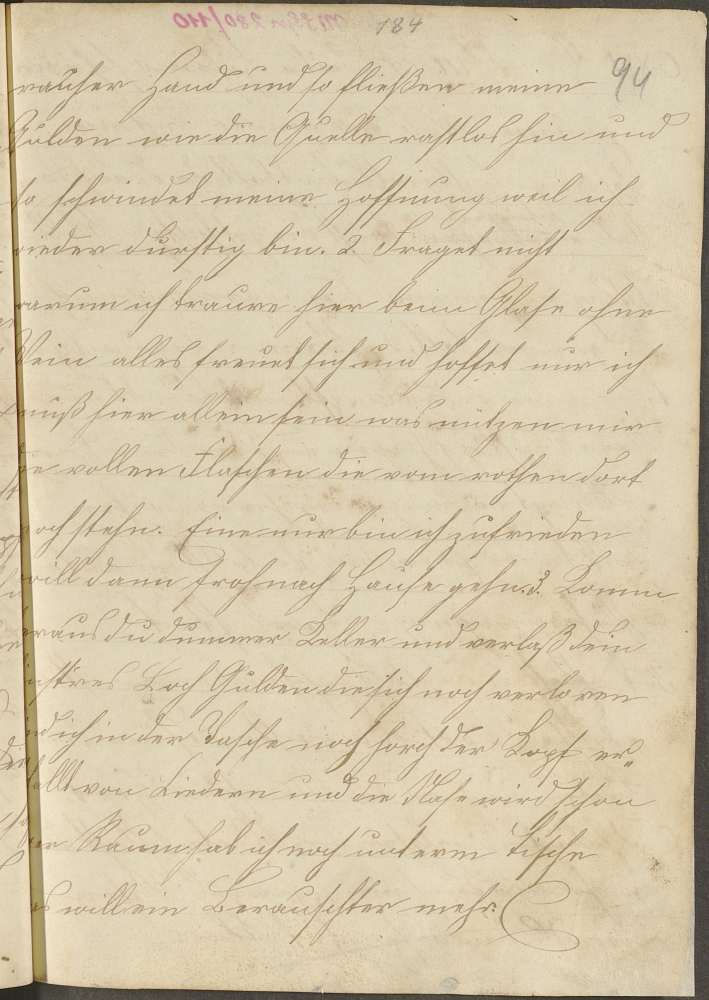 184
94
rascher Hand und so fließen meine
Gulden wie die Quelle rastlos hin und
so schwindet meine Hoffnung weil ich
wieder durstig bin. 2. Fraget nicht
warum ich traure hier beim Glase ohne
Wein alles freuet sich und hoffet nur ich
muß hier allein sein was nützen mir
die vollen Flaschen die vom rothen dort
noch stehn. Eine nur bin ich zufrieden
will dann froh nach Hause gehn. 3. Komm
heraus du dummer Keller und verlaß dein
finstres Loch Gulden die sich noch verloren
find ich in der Tasche noch horch der Kopf er„
füllt von Liedern und die Nase wird schon
Raum hab ich noch unterm Tische
was will ein Berauschter mehr.